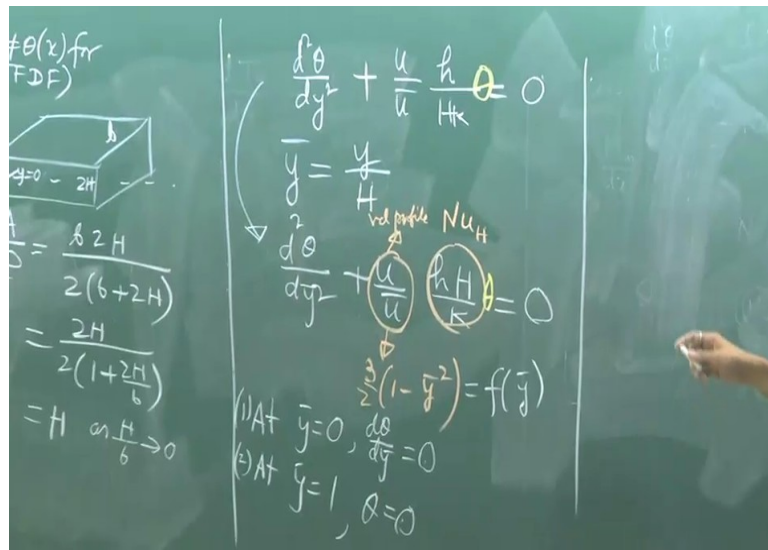 ≠θ(x) for
FDF)
b
y=0 - 2H - -
A/P = b 2H / 2(b+2H)
= 2H / 2(1+2H/b)
= H as H/b → 0
d²θ/dy² + u/ū h/Hk θ = 0
ȳ = y/H
vel profile Nu_H
d²θ/dȳ² + u/ū hH/k θ = 0
3/2 (1 - ȳ²) = f(ȳ)
(1) At ȳ=0, dθ/dȳ = 0
(2) At ȳ=1, θ=0